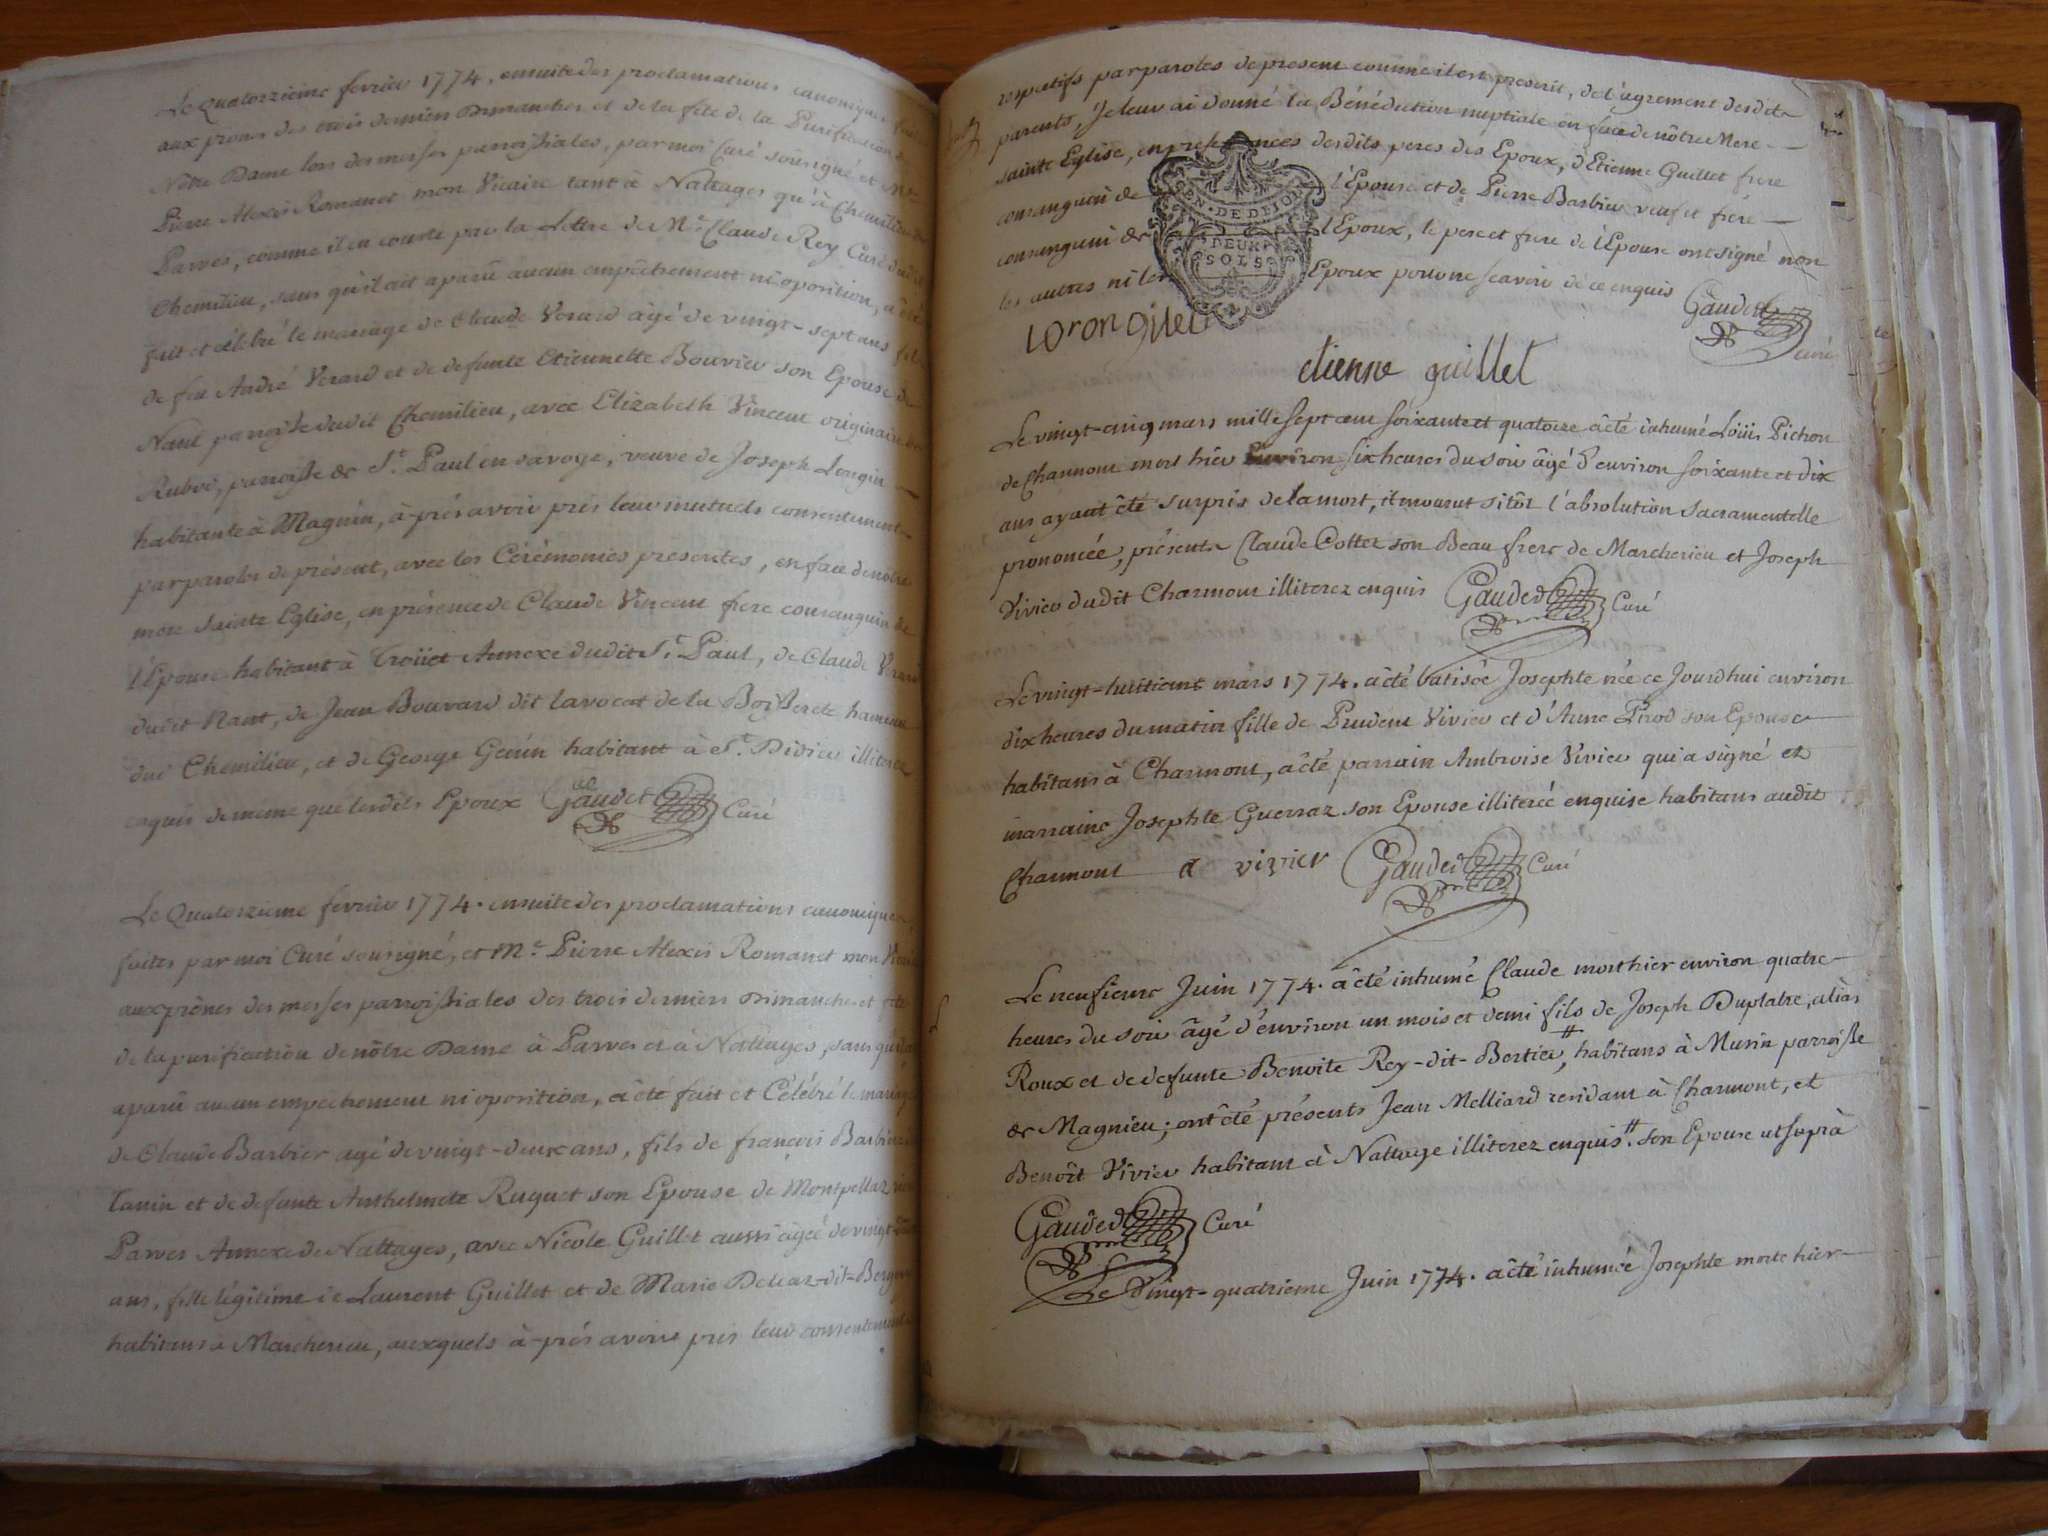 Le quatorzieme fevrier 1774. ensuite des proclamations canoniques
aux prones des trois derniers Dimanches et de la fete de la Purification
Nôtre Dame lors des messes parroissiales, par moi Curé sousigné et Mre
Pierre Alexis Romanet mon Vicaire tant à Nattages qu'à Chemilieu
Parves, comme il en conste par la Lettre de Mr Claude Rey Curé dudit
Chemilieu, sans qu'il ait aparû aucun empêchement ni oposition, a été
fait et célébré le mariage de Claude Verard âgé de vingt-sept ans fils
de feu André Verard et de defunte Etiennette Bouvier son Epouse de
Nant paroisse dudit Chemilieu, avec Elizabeth Vincent originaire
Rubod, paroisse de St. Paul en savoye, veuve de Joseph Longin
habitante à Magnin, à prés avoir pris leur mutuels consentement
par paroles de présent, avec les Cérémonies présentes, en face de nôtre
mere sainte Eglise, en présence de Claude Vincent frere consanguin de
l'Epouse habitant à Troüet Annexe dudit St. Paul, de Claude Verard
dudit Nant, de Jean Bouvard dit lavocat de la Boisserete hameau
dud Chemilieu, et de George Genin habitant à St. Didier illiterez
enquis de meme que lesdits Epoux Gaudet Curé
Le Quatorzieme fevrier 1774. ensuite des proclamations canoniques
faites par moi Curé sousigné, et Mre Pierre Alexis Romanet mon Vicaire
aux prônes des messes parroissiales des trois derniers Dimanches et fete
de la purification de nôtre Dame à Parves et à Nattages, sans qu'il
aparû aucun empechement ni oposition, a été fait et Célébré le mariage
de Claude Barbier agé de vingt-deux ans, fils de françois Barbier
Tanin et de defunte Anthelmete Ruguet son Epouse de Montpellaz
Parves Annexe de Nattages, avec Nicole Guillet aussi agée de vingt-deux
ans, fille légitime de Laurent Guillet et de Marie Delraz-dit-Berger
habitans a Marcherieu, auxquels à-prés avoir pris leur consentement
respectifs par paroles de present comme il est prescrit, de l'agrement desdits
parents, Je leur ai donné la Bénédiction nuptiale en face de nôtre Mere
sainte Eglise, en présences desdits peres des Epoux, d'Etienne Guillet frere
consanguin de l'Epouse et de Pierre Barbier veuf et frére
consanguin de l'Epoux, le pere et frere de l'Epouse ont signé non
les autres ni les Epoux pour ne scavoir de ce enquis Gaudet
GEN. DE DIJON
DEUX
SOLS
loron gilet
curé
etienne guillet
Le vingt-cinq mars mille sept cent soixante et quatorze a été inhumé Loüis Pichon
de Charmont mort hier Environ six heures du soir âgé d'environ soixante et dix
ans ayant été surpris de la mort, il mourut sitôt l'absolution Sacramentelle
prononcée, présents Claude Cottez son Beau frere de Marcherieu et Joseph
Vivier dudit Charmont illiterez enquis Gaudet Curé
Le vingt-huitieme mars 1774. a été batisée Josephte née ce Jourd'hui environ
dix heures du matin fille de Prudent Vivier et d'Anne Pirod son Epouse
habitans à Charmont, a été parrain Ambroise Vivier qui a signé et
marraine Josephte Guerraz son Epouse illiterée enquise habitans audit
Charmont a vivier Gaudet Curé
Le neufieme Juin 1774. a été inhumé Claude mort hier environ quatre
heures du soir âgé d'environ un mois et demi fils de Joseph Duplatre, aliàs
Roux et de defunte Benoite Rey-dit-Bertier, # habitans à Murin parroisse
de Magnieu; ont été présents Jean Melliard residant à Charmont, et
Benoît Vivier habitant à Nattage illiterez enquis. # son Epouse ut suprà
Gaudet Curé
Le Vingt-quatrieme Juin 1774. a été inhumée Josephte morte hier